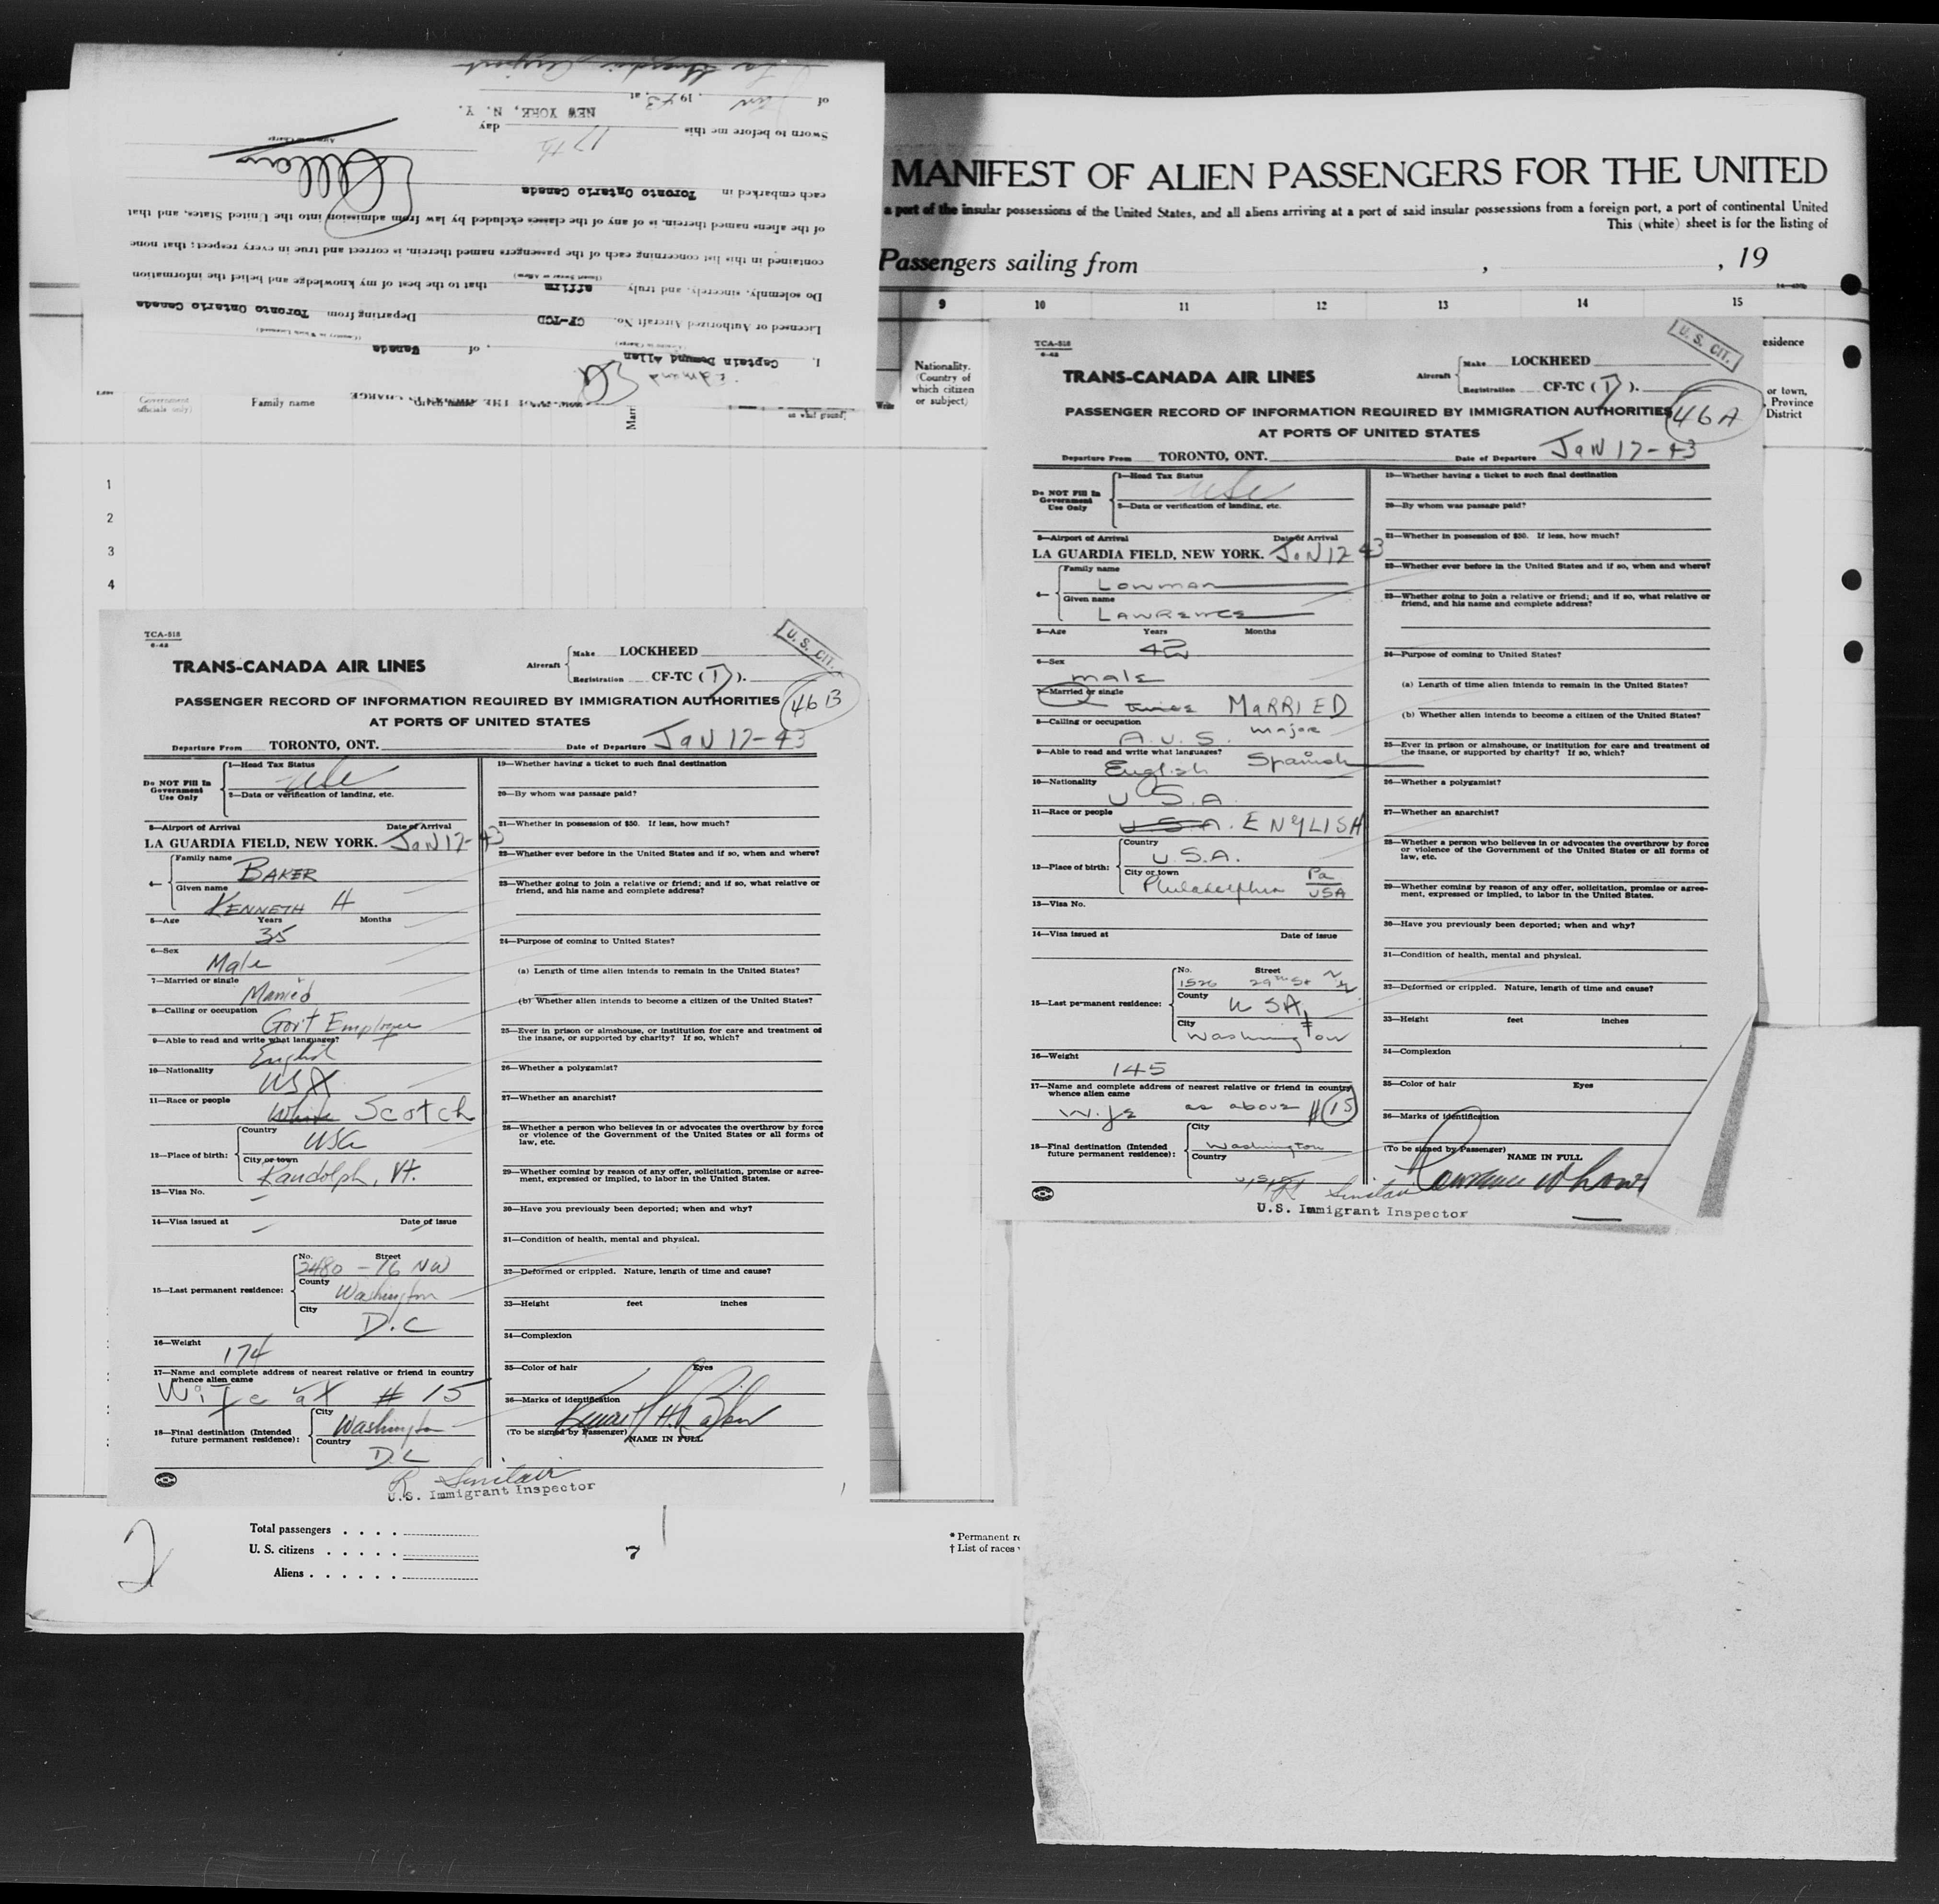 La Guardia Airport
of Jan , 1943, at
NEW YORK, N. Y.
Sworn to before me this 17th day
each embarked in Toronto Ontario Canada
of the aliens named therein, is of any of the classes excluded by law from admission into the United States, and that
contained in this list concerning each of the passengers named therein, is correct and true in every respect; that none
Do solemnly, sincerely, and truly affirm that to the best of my knowledge and belief the information
Licensed or Authorized Aircraft No. CF-TCD Departing from Toronto Ontario Canada
I, Captain Desmund Allan, of Canada
Edmund
Government officials only)
Family name
MANIFEST OF ALIEN PASSENGERS FOR THE UNITED
a part of the insular possessions of the United States, and all aliens arriving at a port of said insular possessions from a foreign port, a port of continental United
This (white) sheet is for the listing of
Passengers sailing from , , 19
9 10 11 12 13 14 15
Nationality.
(Country of
which citizen
or subject)
esidence
or town,
Province
District
1
2
3
4
TCA-518
6-42
U. S. CIT.
TRANS-CANADA AIR LINES
Aircraft Make LOCKHEED
Registration CF-TC (D).
46B
PASSENGER RECORD OF INFORMATION REQUIRED BY IMMIGRATION AUTHORITIES
AT PORTS OF UNITED STATES
Departure From TORONTO, ONT. Date of Departure JAN 17-43
Do NOT Fill In
Government
Use Only
1—Head Tax Status
USC
2—Data or verification of landing, etc.
3—Airport of Arrival Date of Arrival
LA GUARDIA FIELD, NEW YORK. JAN 17-43
4— Family name BAKER
Given name KENNETH H
5—Age Years Months
35
6—Sex
Male
7—Married or single
Married
8—Calling or occupation
Gov't Employee
9—Able to read and write what languages?
English
10—Nationality
USA
11—Race or people
White Scotch
12—Place of birth: Country USA
City or town
Randolph, Vt.
13—Visa No. –
14—Visa issued at – Date of issue
15—Last permanent residence: No. Street
2480 – 16 NW
County
Washington
City
D.C
16—Weight
174
17—Name and complete address of nearest relative or friend in country
whence alien came
Wife at # 15
18—Final destination (Intended
future permanent residence): City Washington
Country
D.C
19—Whether having a ticket to such final destination
20—By whom was passage paid?
21—Whether in possession of $50. If less, how much?
22—Whether ever before in the United States and if so, when and where?
23—Whether going to join a relative or friend; and if so, what relative or
friend, and his name and complete address?
24—Purpose of coming to United States?
(a) Length of time alien intends to remain in the United States?
(b) Whether alien intends to become a citizen of the United States?
25—Ever in prison or almshouse, or institution for care and treatment of
the insane, or supported by charity? If so, which?
26—Whether a polygamist?
27—Whether an anarchist?
28—Whether a person who believes in or advocates the overthrow by force
or violence of the Government of the United States or all forms of
law, etc.
29—Whether coming by reason of any offer, solicitation, promise or agree-
ment, expressed or implied, to labor in the United States.
30—Have you previously been deported; when and why?
31—Condition of health, mental and physical.
32—Deformed or crippled. Nature, length of time and cause?
33—Height feet inches
34—Complexion
35—Color of hair Eyes
36—Marks of identification
Kenneth H. Baker
(To be signed by Passenger) NAME IN FULL
R Sinclair
U.S. Immigrant Inspector
TCA-518
6-42
U. S. CIT.
TRANS-CANADA AIR LINES
Aircraft Make LOCKHEED
Registration CF-TC (D).
46A
PASSENGER RECORD OF INFORMATION REQUIRED BY IMMIGRATION AUTHORITIES
AT PORTS OF UNITED STATES
Departure From TORONTO, ONT. Date of Departure JAN 17-43
Do NOT Fill In
Government
Use Only
1—Head Tax Status
USC
2—Data or verification of landing, etc.
3—Airport of Arrival Date of Arrival
LA GUARDIA FIELD, NEW YORK. JAN 17 43
4— Family name
LOWMAN
Given name
LAWRENCE
5—Age Years Months
42
6—Sex
male
7—Married or single
MARRIED
8—Calling or occupation
A.U.S. Major
9—Able to read and write what languages?
English Spanish
10—Nationality
U S.A.
11—Race or people
U S A. ENGLISH
12—Place of birth: Country
U.S.A.
City or town
Philadelphia Pa USA
13—Visa No.
14—Visa issued at Date of issue
15—Last permanent residence: No. Street
1526 29th St N W
County
U SA
City
Washington
16—Weight
145
17—Name and complete address of nearest relative or friend in country
whence alien came
Wife as above # 15
18—Final destination (Intended
future permanent residence): City
Washington
Country
U.S.A.
19—Whether having a ticket to such final destination
20—By whom was passage paid?
21—Whether in possession of $50. If less, how much?
22—Whether ever before in the United States and if so, when and where?
23—Whether going to join a relative or friend; and if so, what relative or
friend, and his name and complete address?
24—Purpose of coming to United States?
(a) Length of time alien intends to remain in the United States?
(b) Whether alien intends to become a citizen of the United States?
25—Ever in prison or almshouse, or institution for care and treatment of
the insane, or supported by charity? If so, which?
26—Whether a polygamist?
27—Whether an anarchist?
28—Whether a person who believes in or advocates the overthrow by force
or violence of the Government of the United States or all forms of
law, etc.
29—Whether coming by reason of any offer, solicitation, promise or agree-
ment, expressed or implied, to labor in the United States.
30—Have you previously been deported; when and why?
31—Condition of health, mental and physical.
32—Deformed or crippled. Nature, length of time and cause?
33—Height feet inches
34—Complexion
35—Color of hair Eyes
36—Marks of identification
(To be signed by Passenger) NAME IN FULL
Lawrence W Lowm
R Sinclair
U.S. Immigrant Inspector
2
Total passengers . . . .
U. S. citizens . . . . .
Aliens . . . . . .
7
* Permanent re
† List of races